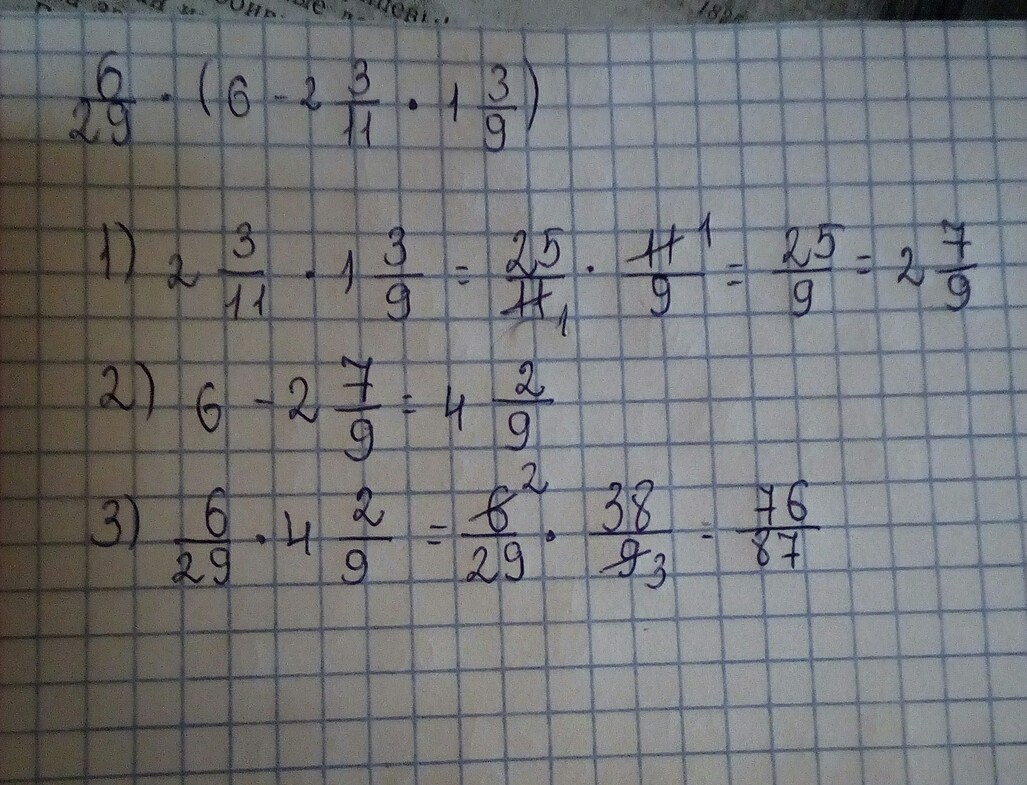 6/29 · (6 - 2 3/11 · 1 3/9)
1) 2 3/11 · 1 3/9 = 25/11 1 · 11/9 1 = 25/9 = 2 7/9
2) 6 - 2 7/9 = 4 2/9
3) 6/29 · 4 2/9 = 6 2/29 · 38/9 3 = 76/87